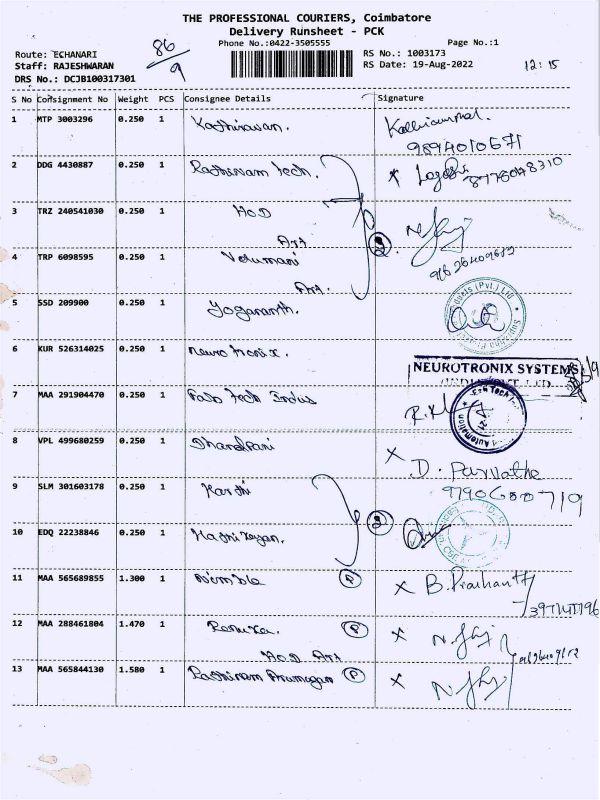 THE PROFESSIONAL COURIERS, Coimbatore
Delivery Runsheet - PCK
Phone No.:0422-3505555 Page No.:1
Route: ECHANARI 86/9 RS No.: 1003173
Staff: RAJESHWARAN RS Date: 19-Aug-2022 12:15
DRS No.: DCJB100317301
S No Consignment No Weight PCS Consignee Details Signature
1 MTP 3003296 0.250 1 Kathiravan.
2 DDG 4430887 0.250 1 Rathinam tech.
3 TRZ 240541030 0.250 1 HOD
Art
4 TRP 6098595 0.250 1 Velumani
Art.
5 SSD 209900 0.250 1
6 KUR 526314025 0.250 1 neuro tronix.
NEUROTRONIX SYSTEMS
7 MAA 291904470 0.250 1 Fab Tech Indus
8 VPL 499680259 0.250 1 Dhandpani
D. Parvatha
9 SLM 301603178 0.250 1 Karthi
10 EDQ 22238846 0.250 1
11 MAA 565689855 1.300 1 Nirmala P B. Prashanth
12 MAA 288461804 1.470 1 Renuka. P
HOD Art
13 MAA 565844130 1.580 1 Rathinam Arumugam P